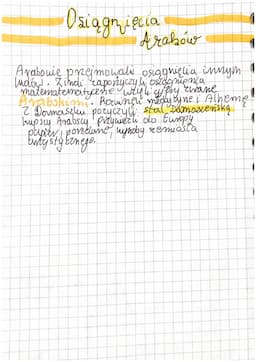 Osiągnięcia
Arabów
Arabowie przejmowali osągnięcia innym
ludów. Z Indi zapożyczyli osągnienia
matematematyczne wzięli cyfry zwane
Arabskimi. Rozwineli medycyne i Alhemę
Z Damaszku pożyczyli stal Damasceńską
kupscy Arabscy przywieźli do Europy
papier, porcelane, wyroby rzemiosła
artystycznego.